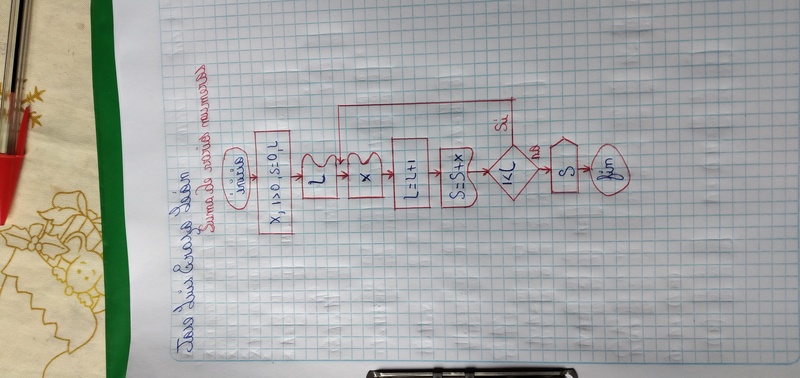 Jose Luis Eraso León
Suma de varios numeros
inicio
X, 1>0, S=0, L
L
x
L=L+1
S=S+x
1<L
Si
no
S
fin